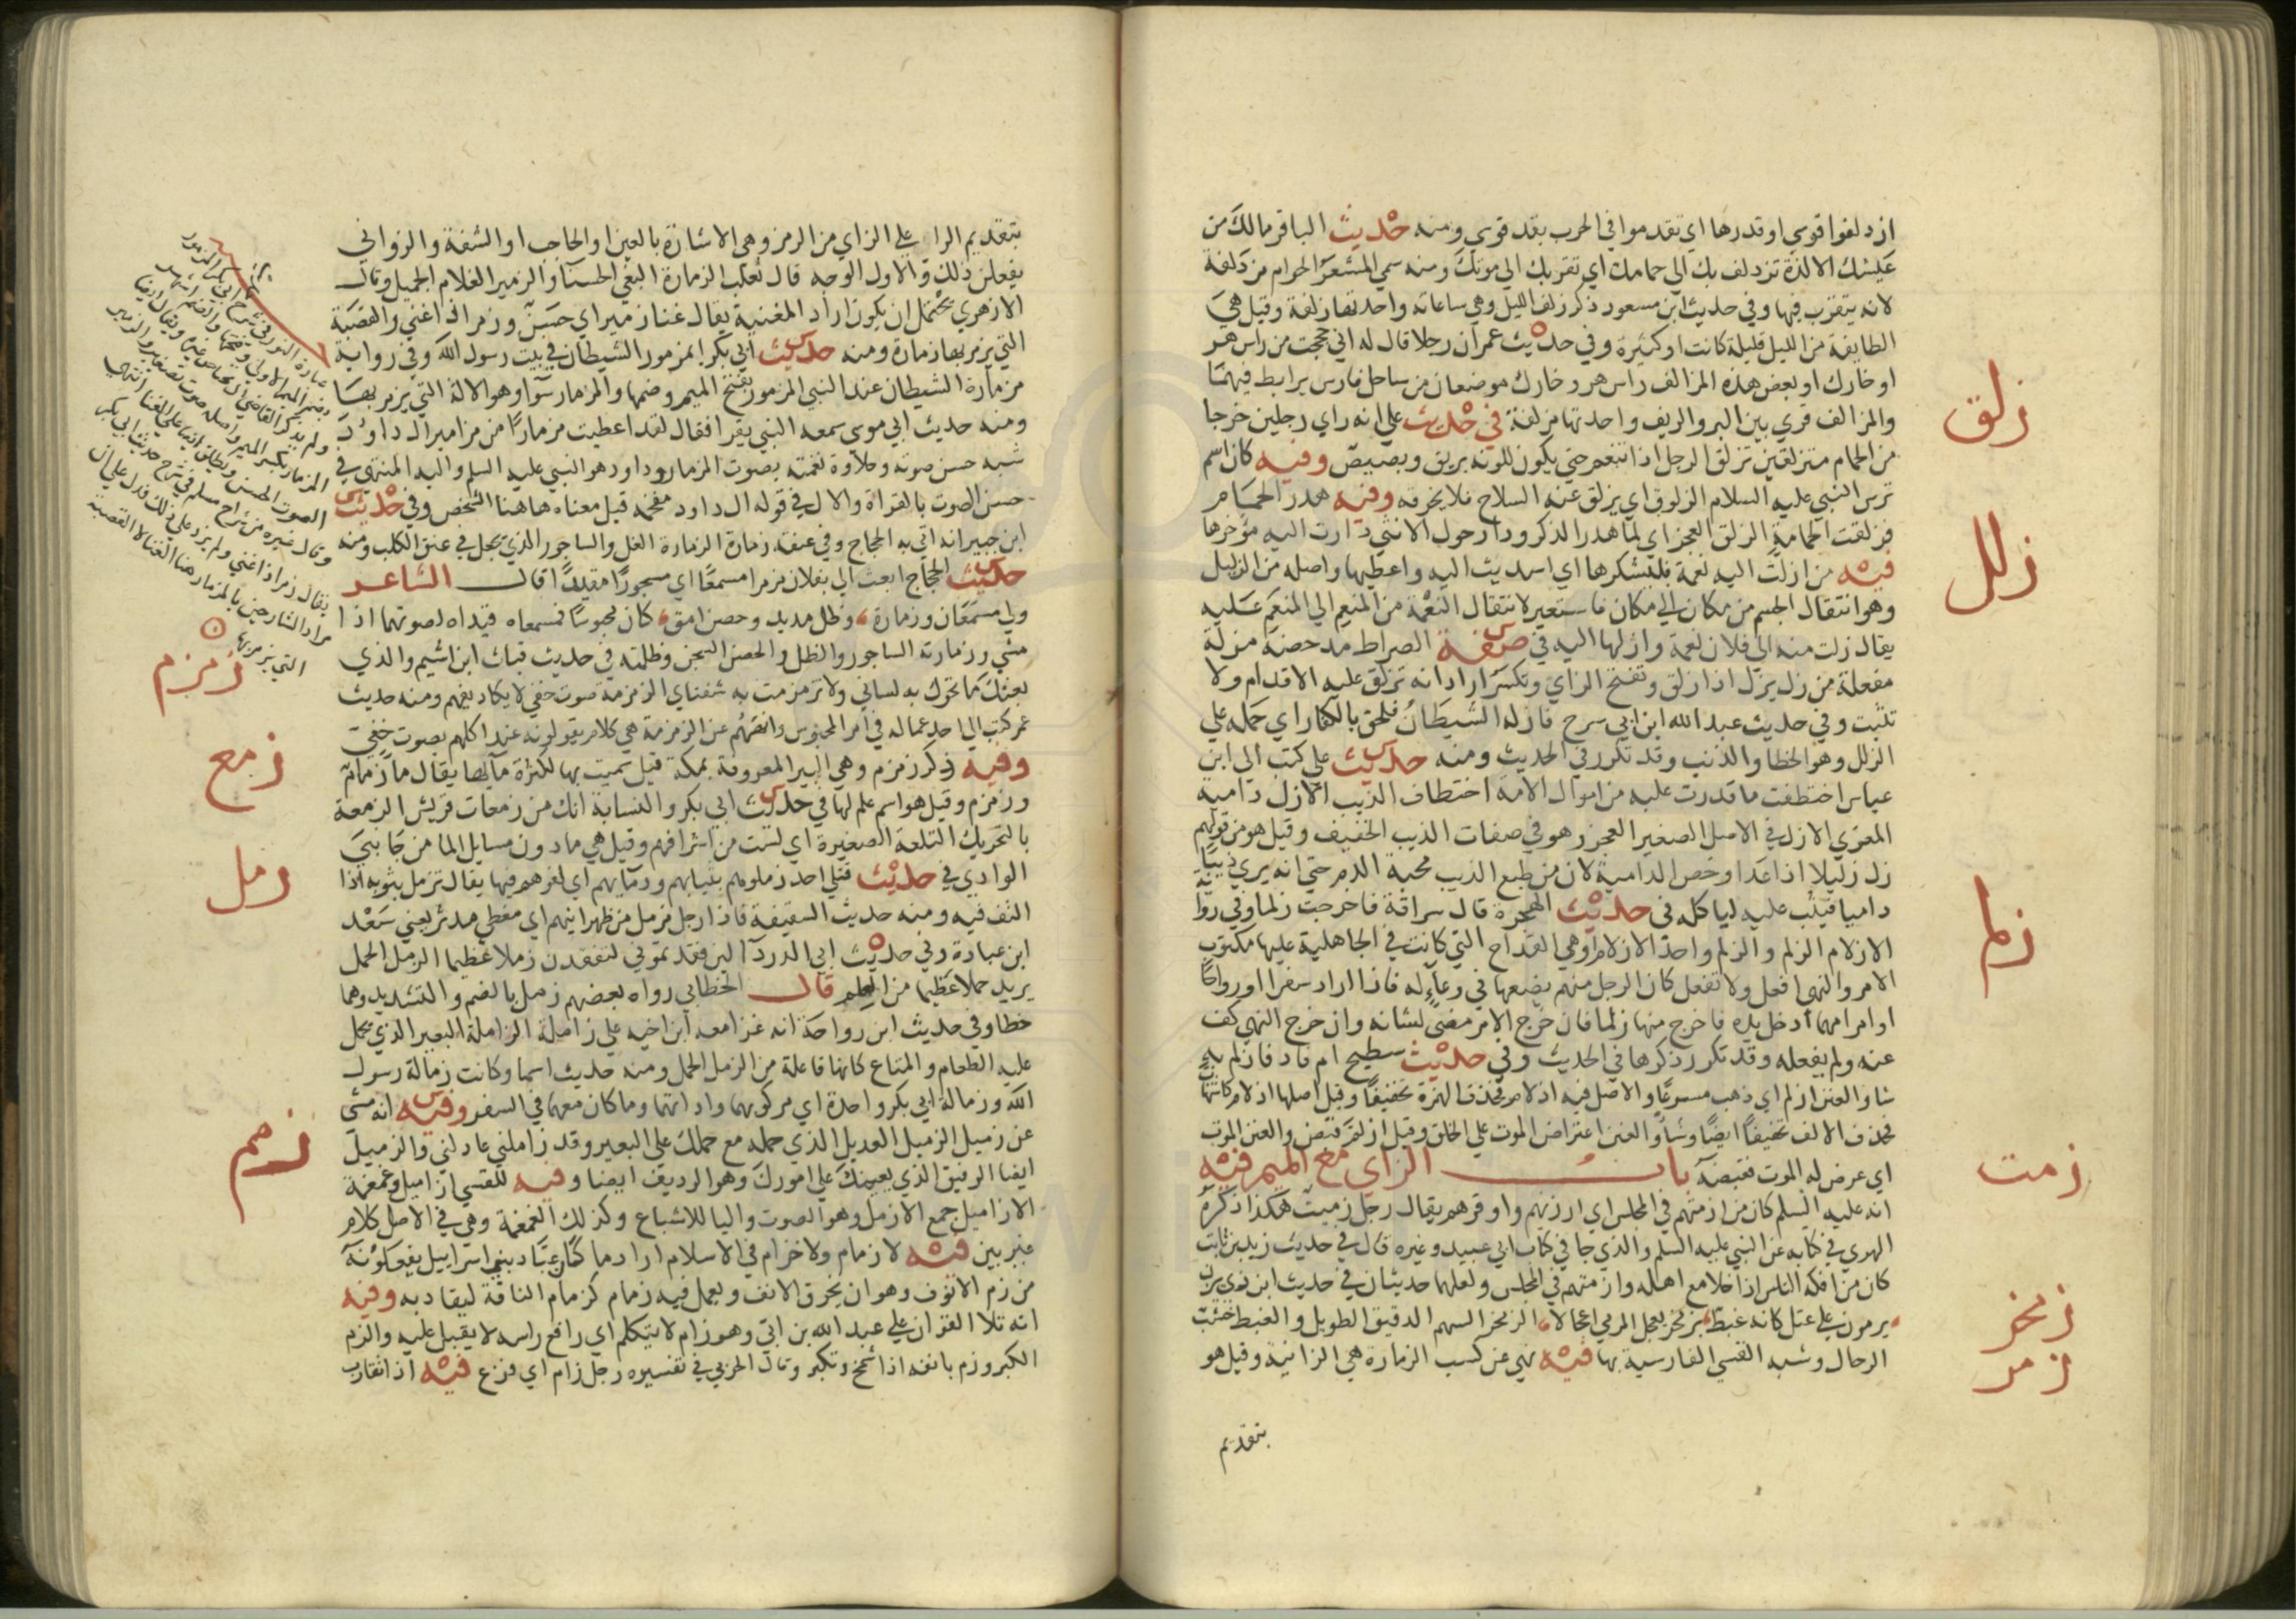 ازدلفوا قوسي او قدرها اي تقدموا في الحرب بقد قوسي ومنه حديث الباقر مالك من
عيشك الا لذة تزدلف بك الي حمامك اي تقربك الي موتك ومنه سمي المشعر الحرام مزدلفة
لانه يتقرب فيها وفي حديث ابن مسعود ذكر زلف الليل وهي ساعاته واحدتها زلفة وقيل هي
الطايفة من الليل قليلة كانت او كثيرة وفي حديث عمر ان رجلا قال له اني حججت من راس هر
او خارك او بعض هذه المزالف راس هر وخارك موضعان من ساحل فارس يرابط فيهما
والمزالف قري بين البر والريف واحدتها مزلفة في حديث علي انه راي رجلين خرجا
زلق
من الحمام متزلقين تزلق الرجل اذا تنعم حتي يكون للونه بريق وبصيص وفيه كان اسم
ترس النبي عليه السلام الزلوق اي يزلق عنه السلاح فلا يخرقه وفيه هدر الحمام
فزلقت الحمامة الزلق العجز اي لما هدر الذكر ودار حول الانثي دارت اليه مؤخرها
زلل
فيه من ازلت اليه نعمة فليشكرها اي اسديت اليه واعطيها واصله من الزليل
وهو انتقال الجسم من مكان الي مكان فاستعير لانتقال النعمة من المنعم الي المنعم عليه
يقال زلت منه الي فلان نعمة وازلها اليه في صفة الصراط مدحضة مزلة
مفعلة من زل يزل اذا زلق وتفتح الزاي وتكسر اراد انه تزلق عليه الاقدام ولا
تثبت وفي حديث عبد الله ابن ابي سرح فازله الشيطان فلحق بالكفار اي حمله علي
الزلل وهو الخطا والذنب وقد تكرر في الحديث ومنه حديث علي كتب الي ابن
عباس اختطفت ما قدرت عليه من اموال الامة اختطاف الذيب الازل دامية
المعزي الازل في الاصل الصغير العجز وهو في صفات الذيب الخفيف وقيل هو من قولهم
زل زليلا اذا عدا وخص الدامية لان من طبع الذيب محبة الدم حتي انه يري ذيبا
داميا فيثب عليه لياكله في حديث الهجرة قال سراقة فاخرجت زلما وفي رواية
زلم
الازلام الزلم والزلم واحد الازلام وهي القداح التي كانت في الجاهلية عليها مكتوب
الامر والنهي افعل ولا تفعل كان الرجل منهم يضعها في وعاء له فاذا اراد سفرا او رواحا
او امرا مهما ادخل يده فاخرج منها زلما فان خرج الامر مضي لشانه وان خرج النهي كف
عنه ولم يفعله وقد تكرر ذكرها في الحديث وفي حديث سطيح ام فاد فازلم به
شاو العنن ازلم اي ذهب مسرعا والاصل فيه ازلام فحذف الهمزة تخفيفا وقيل اصلها ازلام كاشهاب
فحذف الالف تخفيفا ايضا وشاو العنن اعتراض الموت علي الخلق وقيل ازلم قبض والعنن الموت
اي عرض له الموت فقبضه باب الزاي مع الميم فيه
زمت
انه عليه السلم كان من ازمتهم في المجلس اي ارزنهم واوقرهم يقال رجل زميت هكذا ذكره
الهروي في كتابه عن النبي عليه السلم والذي جا في كتاب ابي عبيد وغيره قال في حديث زيد بن ثابت
كان من افكه الناس اذا خلا مع اهله وازمتهم في المجلس ولعلهما حديثان في حديث ابن ذي يزن
زمخر
يرمون علي عتل كانه غبط بزمخر يعجل المرمي اعجالا الزمخر السهم الدقيق الطويل والغبط خشب
زمر
الرحال وشبه القسي الفارسية بها فيه نهي عن كسب الزمارة هي الزانية وقيل هو
بتقديم
بتقديم الراء علي الزاي من الرمز وهي الاشارة بالعين او الحاجب او الشفة والزواني
يفعلن ذلك والاول الوجه قال ثعلب الزمارة البغي الحسنا والزمير الغلام الجميل وقال
الازهري يحتمل ان يكون اراد المغنية يقال غنا زمير اي حسن وزمر اذا غني والقصبة
التي يزمر بها زمارة ومنه حديث ابي بكر ابمزمور الشيطان في بيت رسول الله وفي رواية
مزمارة الشيطان عند النبي المزمور بفتح الميم وضمها والمزمار سوآ وهو الالة التي يزمر بها
ومنه حديث ابي موسي سمعه النبي يقرا فقال لقد اعطيت مزمارا من مزامير ال داود
شبه حسن صوته وحلاوة نغمته بصوت المزمار وداود هو النبي عليه السلم واليه المنتهي في
حسن الصوت بالقراة والال في قوله ال داود مقحمة قيل معناه هاهنا الشخص وفي حديث
ابن جبير انه اتي به الحجاج وفي عنقه زمارة الزمارة الغل والساجور الذي يجعل في عنق الكلب ومنه
حديث الحجاج ابعث الي بفلان مزمرا مسمعا اي مسجورا مقيدا قال الشاعر
ولي مسمعان وزمارة وظل مديد وحصن امق كان محبوسا فمسمعاه قيداه لصوتهما اذا
مشي وزمارته الساجور والظل والحصن السجن وظلمته في حديث قباث ابن اشيم والذي
زمزم
بعثك ما تحرك به لساني ولا ترمرمت به شفتاي الزمزمة صوت خفي لا يكاد يفهم ومنه حديث
عمر كتب الي احد عماله في امر المجوس وانههم عن الزمزمة هي كلام يقولونه عند اكلهم بصوت خفي
وفيه ذكر زمزم وهي البير المعروفة بمكة قيل سميت بها لكثرة مآيها يقال مآ زمازم
زمع
وزمزم وقيل هو اسم علم لها في حديث ابي بكر والنسابة انك من زمعات قريش الزمعة
بالتحريك التلعة الصغيرة اي لست من اشرافهم وقيل هي ما دون مسايل الما من جانبي
زمل
الوادي في حديث قتلي احد زملوهم بثيابهم ودمآيهم اي لفوهم فيها يقال تزمل بثوبه اذا
التف فيه ومنه حديث السقيفة فاذا رجل مزمل بين ظهرانيهم اي مغطي مدثر يعني سعد
ابن عبادة وفي حديث ابي الدردآ لئن فقدتموني لتفقدن زملا عظيما الزمل الحمل
يريد حملا عظيما من العلم قال الخطابي رواه بعضهم زمل بالضم والتشديد وهما
خطا وفي حديث ابن رواحة انه غزا معه ابن اخيه علي زاملة الزاملة البعير الذي يحمل
عليه الطعام والمتاع كانها فاعلة من الزمل الحمل ومنه حديث اسما وكانت زمالة رسول
الله وزمالة ابي بكر واحدة اي مركوبهما واداتهما وما كان معهما في السفر وفيه انه مشي
عن زميل الزميل العديل الذي حمله مع حملك علي البعير وقد زاملني عادلني والزميل
ايضا الرفيق الذي يعينك علي امورك وهو الرديف ايضا وفيه للقسي ازاميل وغمغمة
الازاميل جمع الازمل وهو الصوت واليا للاشباع وكذلك الغمغمة وهي في الاصل كلام
زمم
غير بين فيه لا زمام ولا خزام في الاسلام اراد ما كان عباد بني اسراييل يفعلونه
من زم الانوف وهو ان يخرق الانف ويعمل فيه زمام كزمام الناقة ليقاد به وفيه
انه تلا القران علي عبد الله بن ابي وهو زام لا يتكلم اي رافع راسه لا يقبل عليه والزم
الكبر وزم بانفه اذا شمخ وتكبر وقال الحربي في تفسيره رجل زام اي فزع فيه اذا تقارب
عبارة النووي في شرح
بضم الميم الاولي وفتحها والضم اشهر
ولم يذكر القاضي عياض غيره ويقال ايضا
المزمار بكسر الميم واصله صوت بصفير والزمير
الصوت الحسن ويطلق ايضا علي الغنا انتهي
وقال غيره من شراح مسلم في شرح حديث ابي بكر
يقال زمر اذا غني ولم يزد علي ذلك فدل علي ان
مراد الشارحين بالمزمار هنا الغنا لا القصبة
التي يزمر بها